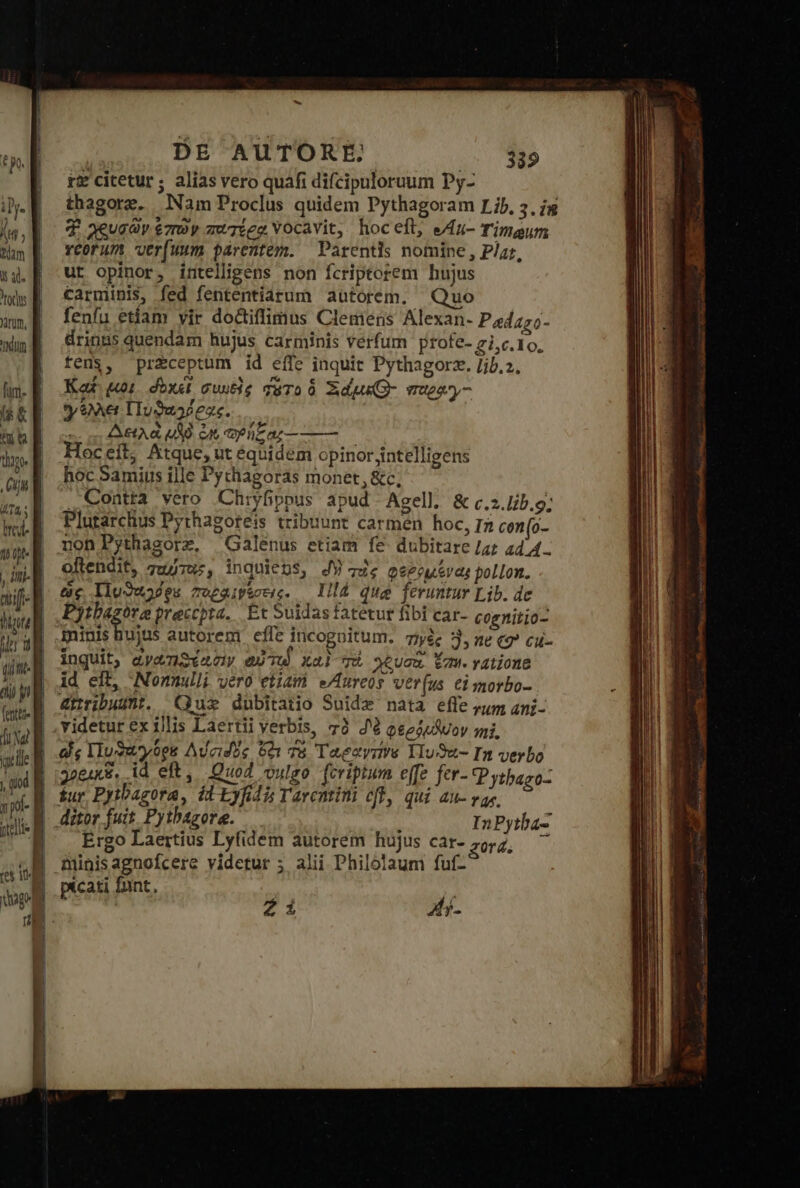 DE AUTORE. 339
ræ citetur ; alias vero quaſi diſcipuloruum Py-
thagoræ. Nam Proclus quidem Pythagoram Lib. 3. in
χρυσῶν ἐπῶν πατέρα vocavit, hoc eſt, Au- Timæum
reorum verſuum parentem. Parentis nomine, Plat.
ut opinor, intelligens non ſcriptorem hujus
carminis, ſed ſententiarum autorem. Quo
ſenſu etiam vir doctiſſimus Clemens Alexan- Pædago-
drinus quendam hujus carminis verſum profe- gi,c.10.
rens, præceptum id eſſe inquit Pythagoræ. lib.2.
Καί μοι δοκεῖ συνεὶς τοῦτο ὁ Σάμιος παραγ-
γέλλει Πυθαγόρας.
Δειλὰ μὲν ἐκπρήξας———
Hoc eſt, Atque, ut equidem opinor,intelligens
hoc Samius ille Pythagoras monet, &c.
Contra vero Chryſippus apud Agell. & c.2.lib.9:
Plutarchus Pythagoreis tribuunt carmen hoc, In conſo-
non Pythagoræ. Galenus etiam ſe dubitare lat. ad A-
oſtendit, ταύταις, inquiens, δὴ ταῖς φερομέναις pollon.
ὡς Πυθαγόρου παραινέσεις. Illâ quæ feruntur Lib. de
Pythagoræ præcepta. Et Suidas fatetur ſibi car- cognitio-
minis hujus autorem eſſe incognitum. τινὲς δὲ, ne & cu-
inquit, ἀνατιθέασιν αὐτῷ καὶ τὰ χρυσᾶ ἔπη. ratione
id eſt, Nonnulli vero etiam Aureos verſus ei morbo-
attribuunt. Quæ dubitatio Suidæ nata eſſe rum ani-
videtur ex illis Laertii verbis, τὸ δὲ φερόμενον mi.
ὡς Πυθαγόρου Λύσιδός ἐστι τοῦ Ταραντίνου Πυθα- In verbo
γορικοῦ. id eſt, Quod vulgo ſcriptum eſſe fer- Pythago-
tur Pythagoræ, id Lyſidis Tarentini eſt, qui au- ras.
ditor fuit Pythagoræ. In Pytha-
Ergo Laertius Lyſidem autorem hujus car- gora.
minis agnoſcere videtur ; alii Philolaum ſuſ-
picati ſunt.
Z i Ar-